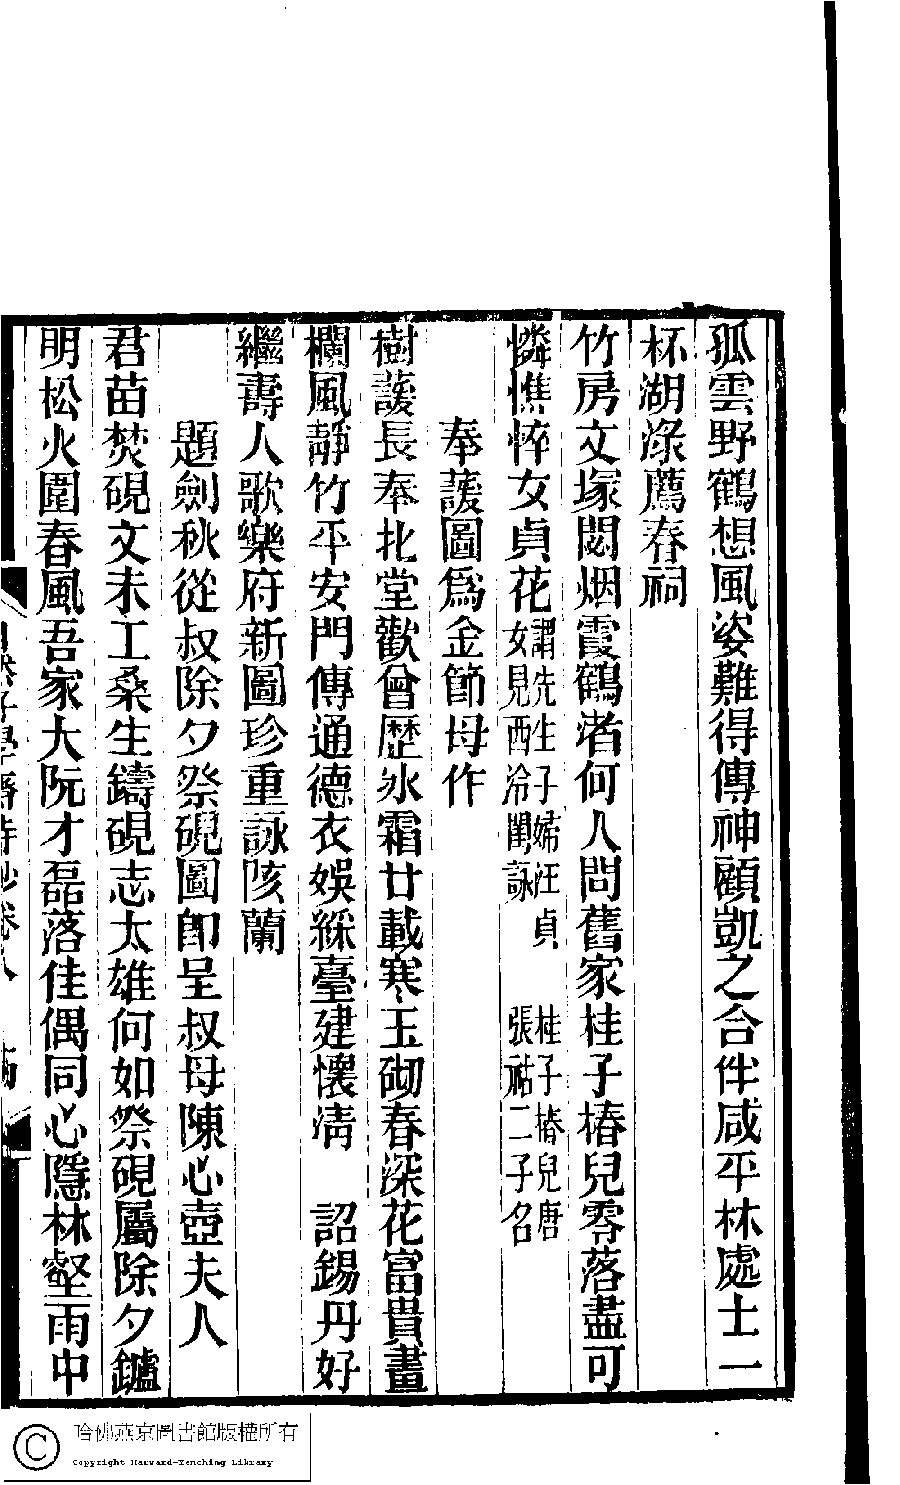 孤雲野鶴想風姿難得傳神顧凱之合伴咸平林處士一
杯湖淥薦春祠
竹房文塚閟烟霞鶴渚何人問舊家桂子椿兒零落盡可
憐憔悴女貞花謂先生子婦汪貞 桂子椿兒唐
女見西泠閨詠 張祜二子名
奉萱圖爲金節母作
樹萱長奉北堂歡曾歷氷霜廿載寒玉砌春深花富貴畫
欄風靜竹平安門傳通德衣娛綵臺建懷清 詔錫丹好
繼壽人歌樂府新圖珍重詠陔蘭
題劍秋從叔除夕祭硯圖即呈叔母陳心壺夫人
君苗焚硯文未工桑生鑄硯志太雄何如祭硯屬除夕鑪
明松火圍春風吾家大阮才磊落佳偶同心隱林壑雨中
學齋詩鈔卷八
哈佛燕京圖書館版權所有
Copyright Harvard-Yenching Library